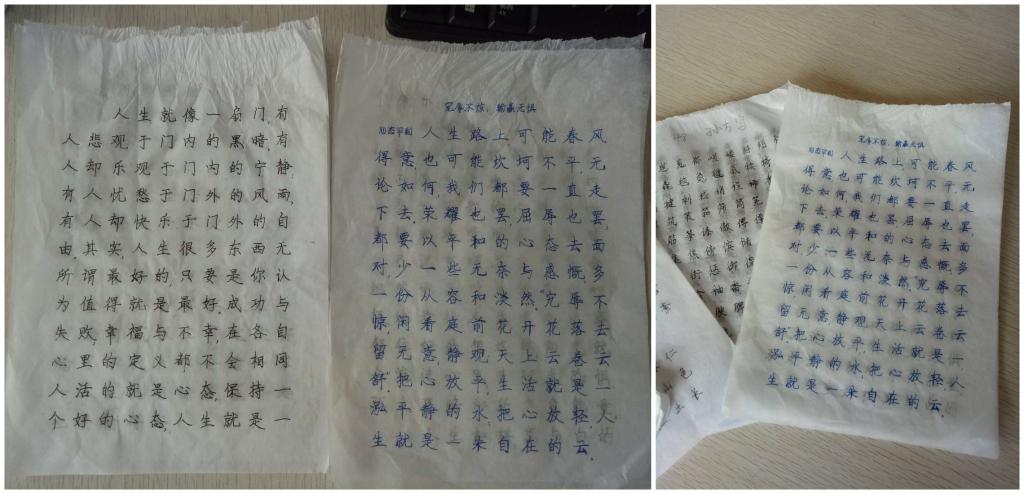 人生就像一扇门,有
人悲观于门内的黑暗,有
人却乐观于门内的宁静,
有人忧愁于门外的风雨,
有人却快乐于门外的自
由,其实,人生很多东西无
所谓最好的,只要是你认
为值得就是最好,成功与
失败,幸福与不幸,在各自
心里的定义都不会相同
人活的就是心态,保持一
个好的心态,人生就是一
宠辱不惊,输赢无惧
人生路上,可能春风
得意,也可能坎坷不平,无
论如何,我们都要一直走
下去,荣耀也罢,屈辱也罢,
都要以平和的心态去面
对,少一些无奈与感慨,多
一份从容和淡然,"宠辱不
惊,闲看庭前花开花落去
留无意,静观天上云卷云
舒"把心放平,生活就是一
泓平静的水,把心放轻,人
生就是一朵自在的云。
宠辱不惊,输赢无惧
人生路上,可能春风
得意,也可能坎坷不平,无
论如何,我们都要一直走
下去,荣耀也罢,屈辱也罢,
都要以平和的心态去面
对,少一些无奈与感慨,多
一份从容和淡然,"宠辱不
惊,闲看庭前花开花落去
留无意,静观天上云卷云
舒"把心放平,生活就是一
泓平静的水,把心放轻,人
生就是一朵自在的云。